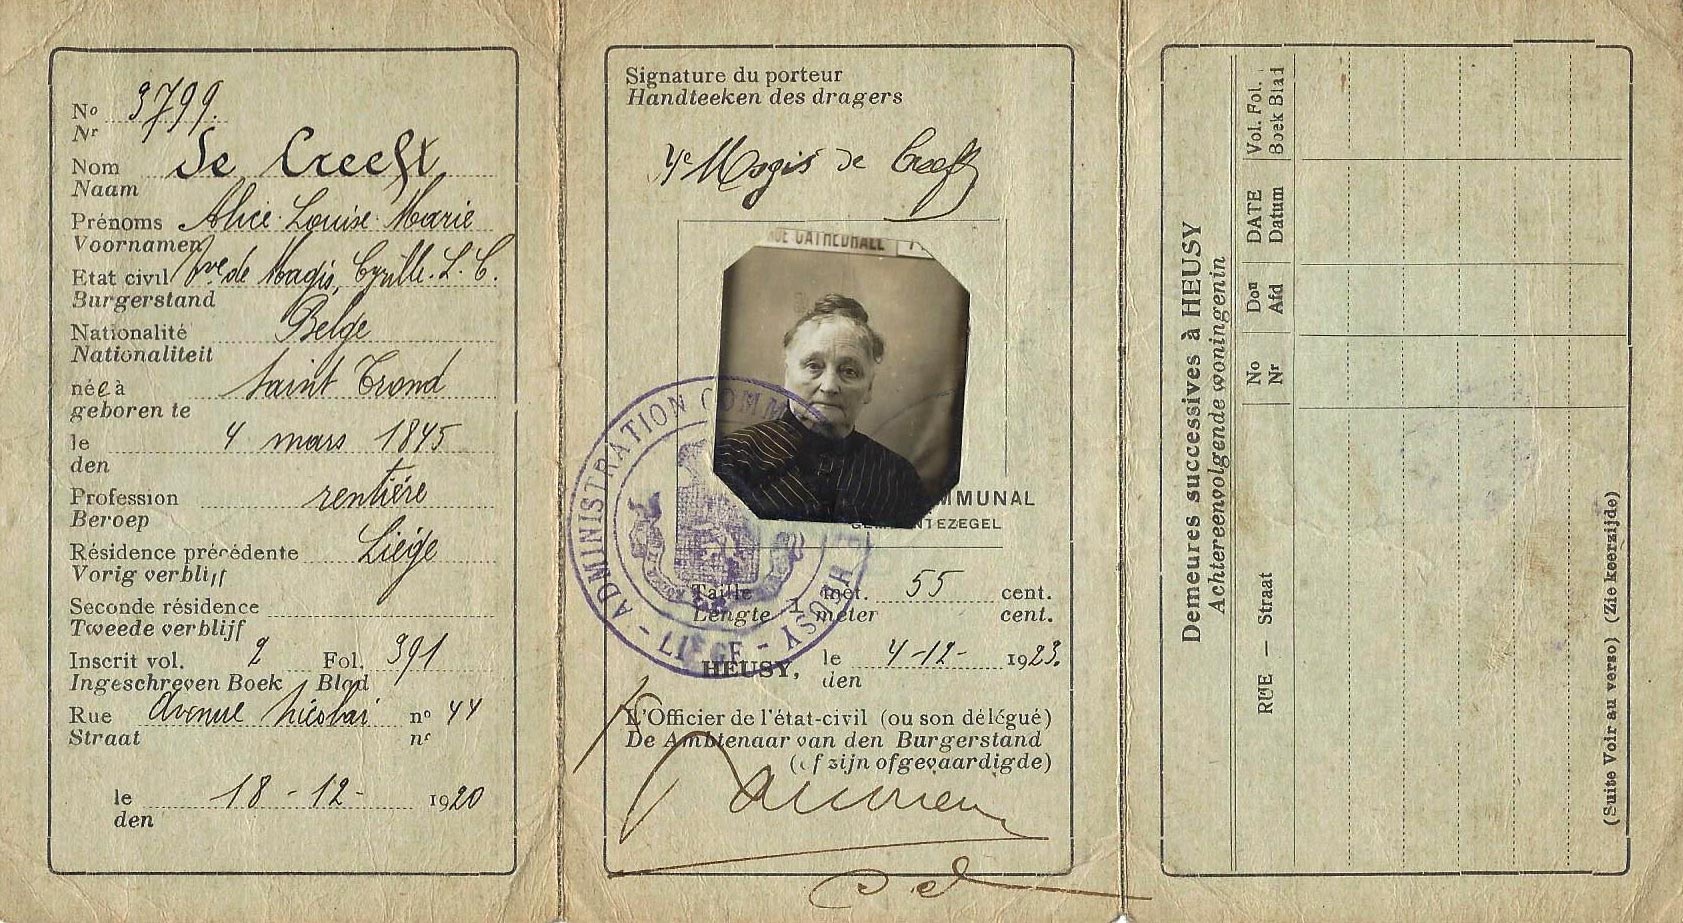 No 3799.
Nr
Nom De Creeft
Naam
Prénoms Alice Louise Marie
Voornamen
Etat civil Vve de Magis, Cyrille. L. C.
Burgerstand
Nationalité Belge
Nationaliteit
née à Saint Trond
geboren te
le 4 mars 1845
den
Profession rentière
Beroep
Résidence précédente Liége
Vorig verblijf
Seconde résidence
Tweede verblijf
Inscrit vol. 2 Fol. 391
Ingeschreven Boek Blad
Rue Avenue Nicolai no 44
Straat nr
le 18-12- 1920
den
Signature du porteur
Handteeken des dragers
Magis de Creeft
RUE CATHEDRALE
MMUNAL
GEMEENTEZEGEL
ADMINISTRATION COMM HEUSY
- LIEGE -
Taille 1 met. 55 cent.
Lengte meter cent.
HEUSY, le 4-12- 1923.
den
L'Officier de l'état-civil (ou son délégué)
De Ambtenaar van den Burgerstand
(of zijn ofgevaardigde)
Demeures successives à HEUSY
Achtereenvolgende woningen in
RUE — Straat
No
Nr
Don
Afd
DATE
Datum
Vol. Fol.
Boek Blad
(Suite Voir au verso) (Zie keerzijde)